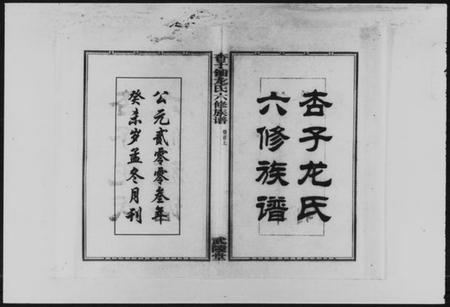 杏子龙氏
六修族谱
杏子铺龙氏六修族谱
武陵堂
公元贰零零叁年
癸未岁孟冬月刊